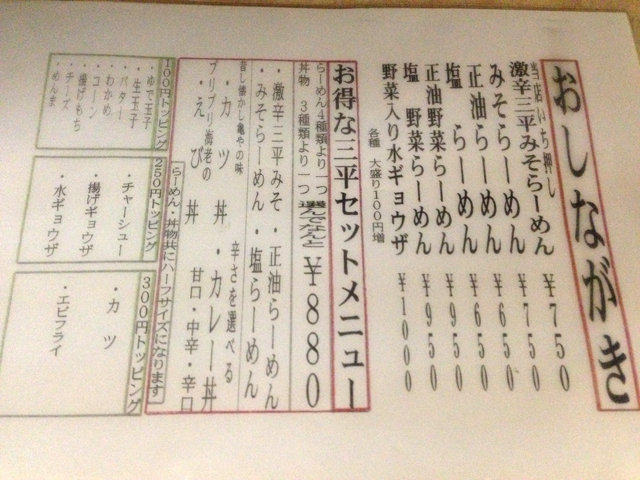 おしながき
当店いち押し
激辛三平みそらーめん ¥750
みそらーめん ¥750
正油らーめん ¥650
塩 らーめん ¥650
正油野菜らーめん ¥950
塩 野菜らーめん ¥950
野菜入り水ギョウザ ¥1000
各種 大盛り100円増
お得な三平セットメニュー
らーめん4種類より一つ
丼物 3種類より一つ
選んでなんと ¥880
・激辛三平みそ・正油らーめん
・みそらーめん・塩らーめん
昔し懐かし亀やの味 辛さを選べる
・カツ丼・カレー丼
プリプリ海老の 甘口・中辛・辛口
・えび丼
らーめん・丼物共にハーフサイズになります
100円トッピング
・ゆで玉子
・生玉子
・バター
・わかめ
・コーン
・揚げもち
・チーズ
・めんま
250円トッピング
・チャーシュー
・揚げギョウザ
・水ギョウザ
300円トッピング
・カツ
・エビフライ